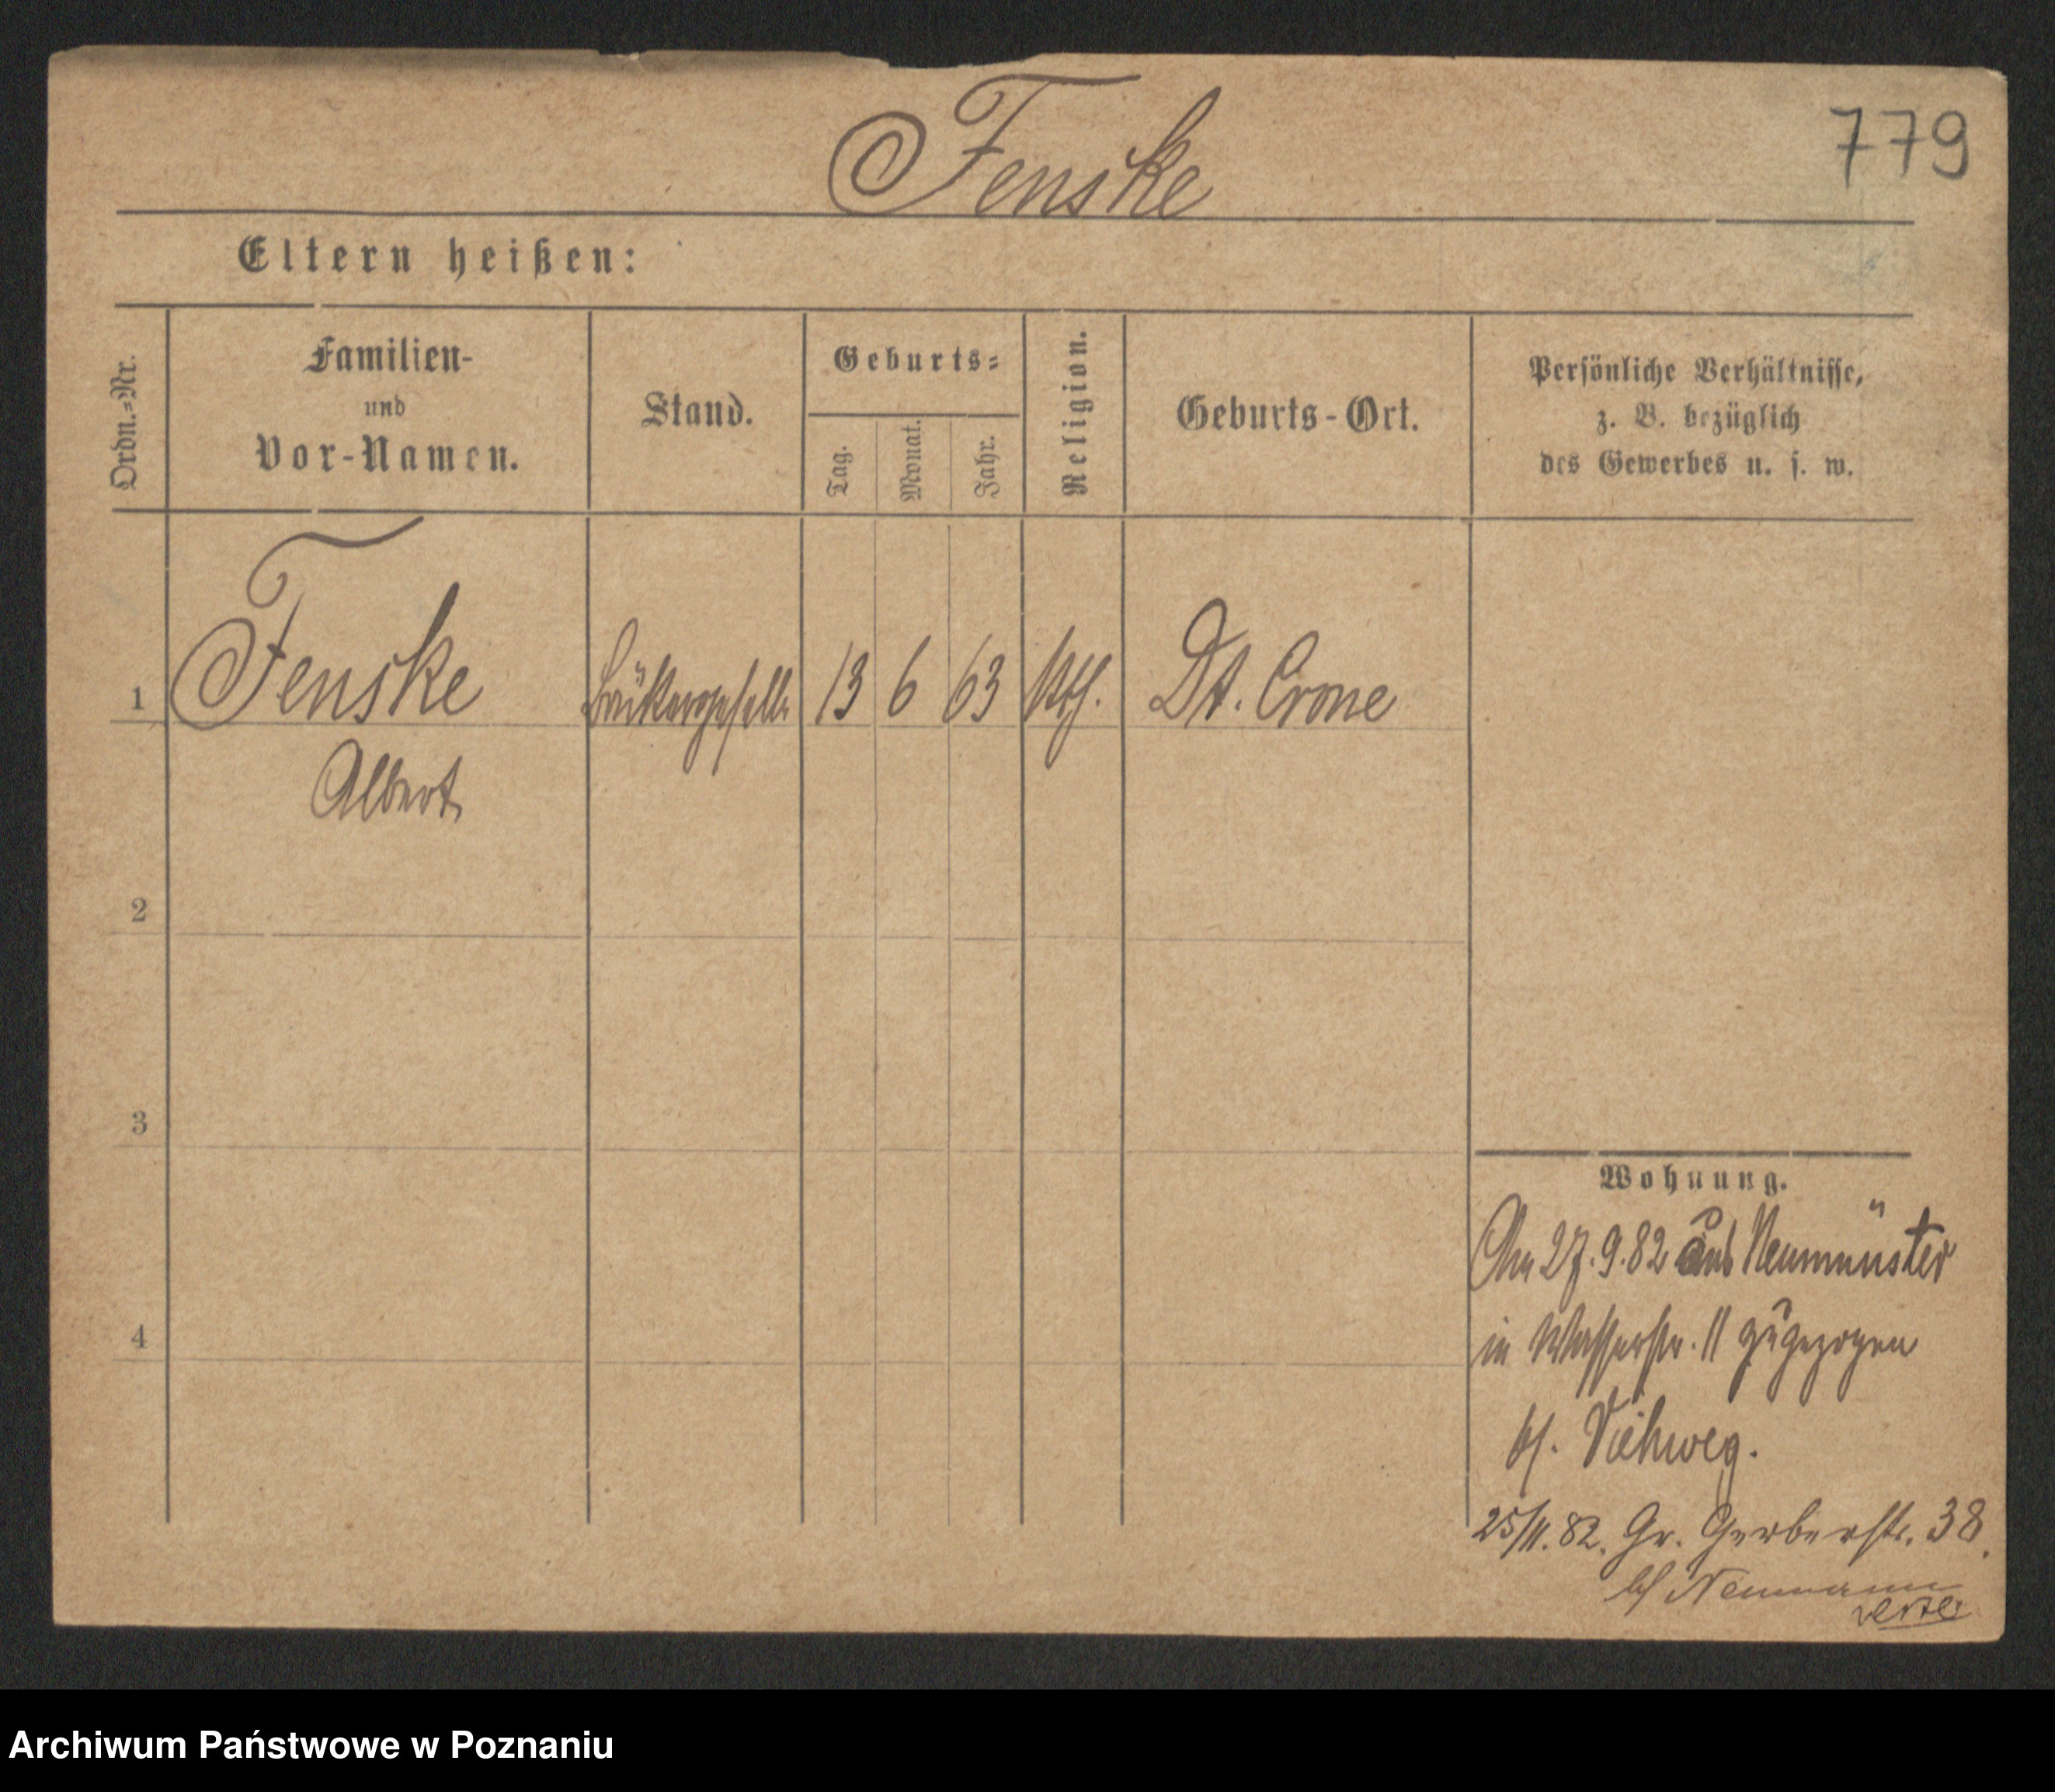 779
Fenske
Eltern heißen:
Ordn.=Nr.
Familien-
und
Vor-Namen.
Stand.
Geburts=
Tag.
Monat.
Jahr.
Religion.
Geburts-Ort.
Persönliche Verhältnisse,
z. B. bezüglich
des Gewerbes u. s. w.
1 Fenske 13 6 63 kth. Dt. Crone
Albert
2
3
4
Wohnung.
Am 27.9.82 aus Neumünster
in Wasserstr. 11 zugezogen
bh. Viehweg.
25/11.82. Gr. Gerberstr. 38.
bh Neumann
Archiwum Państwowe w Poznaniu